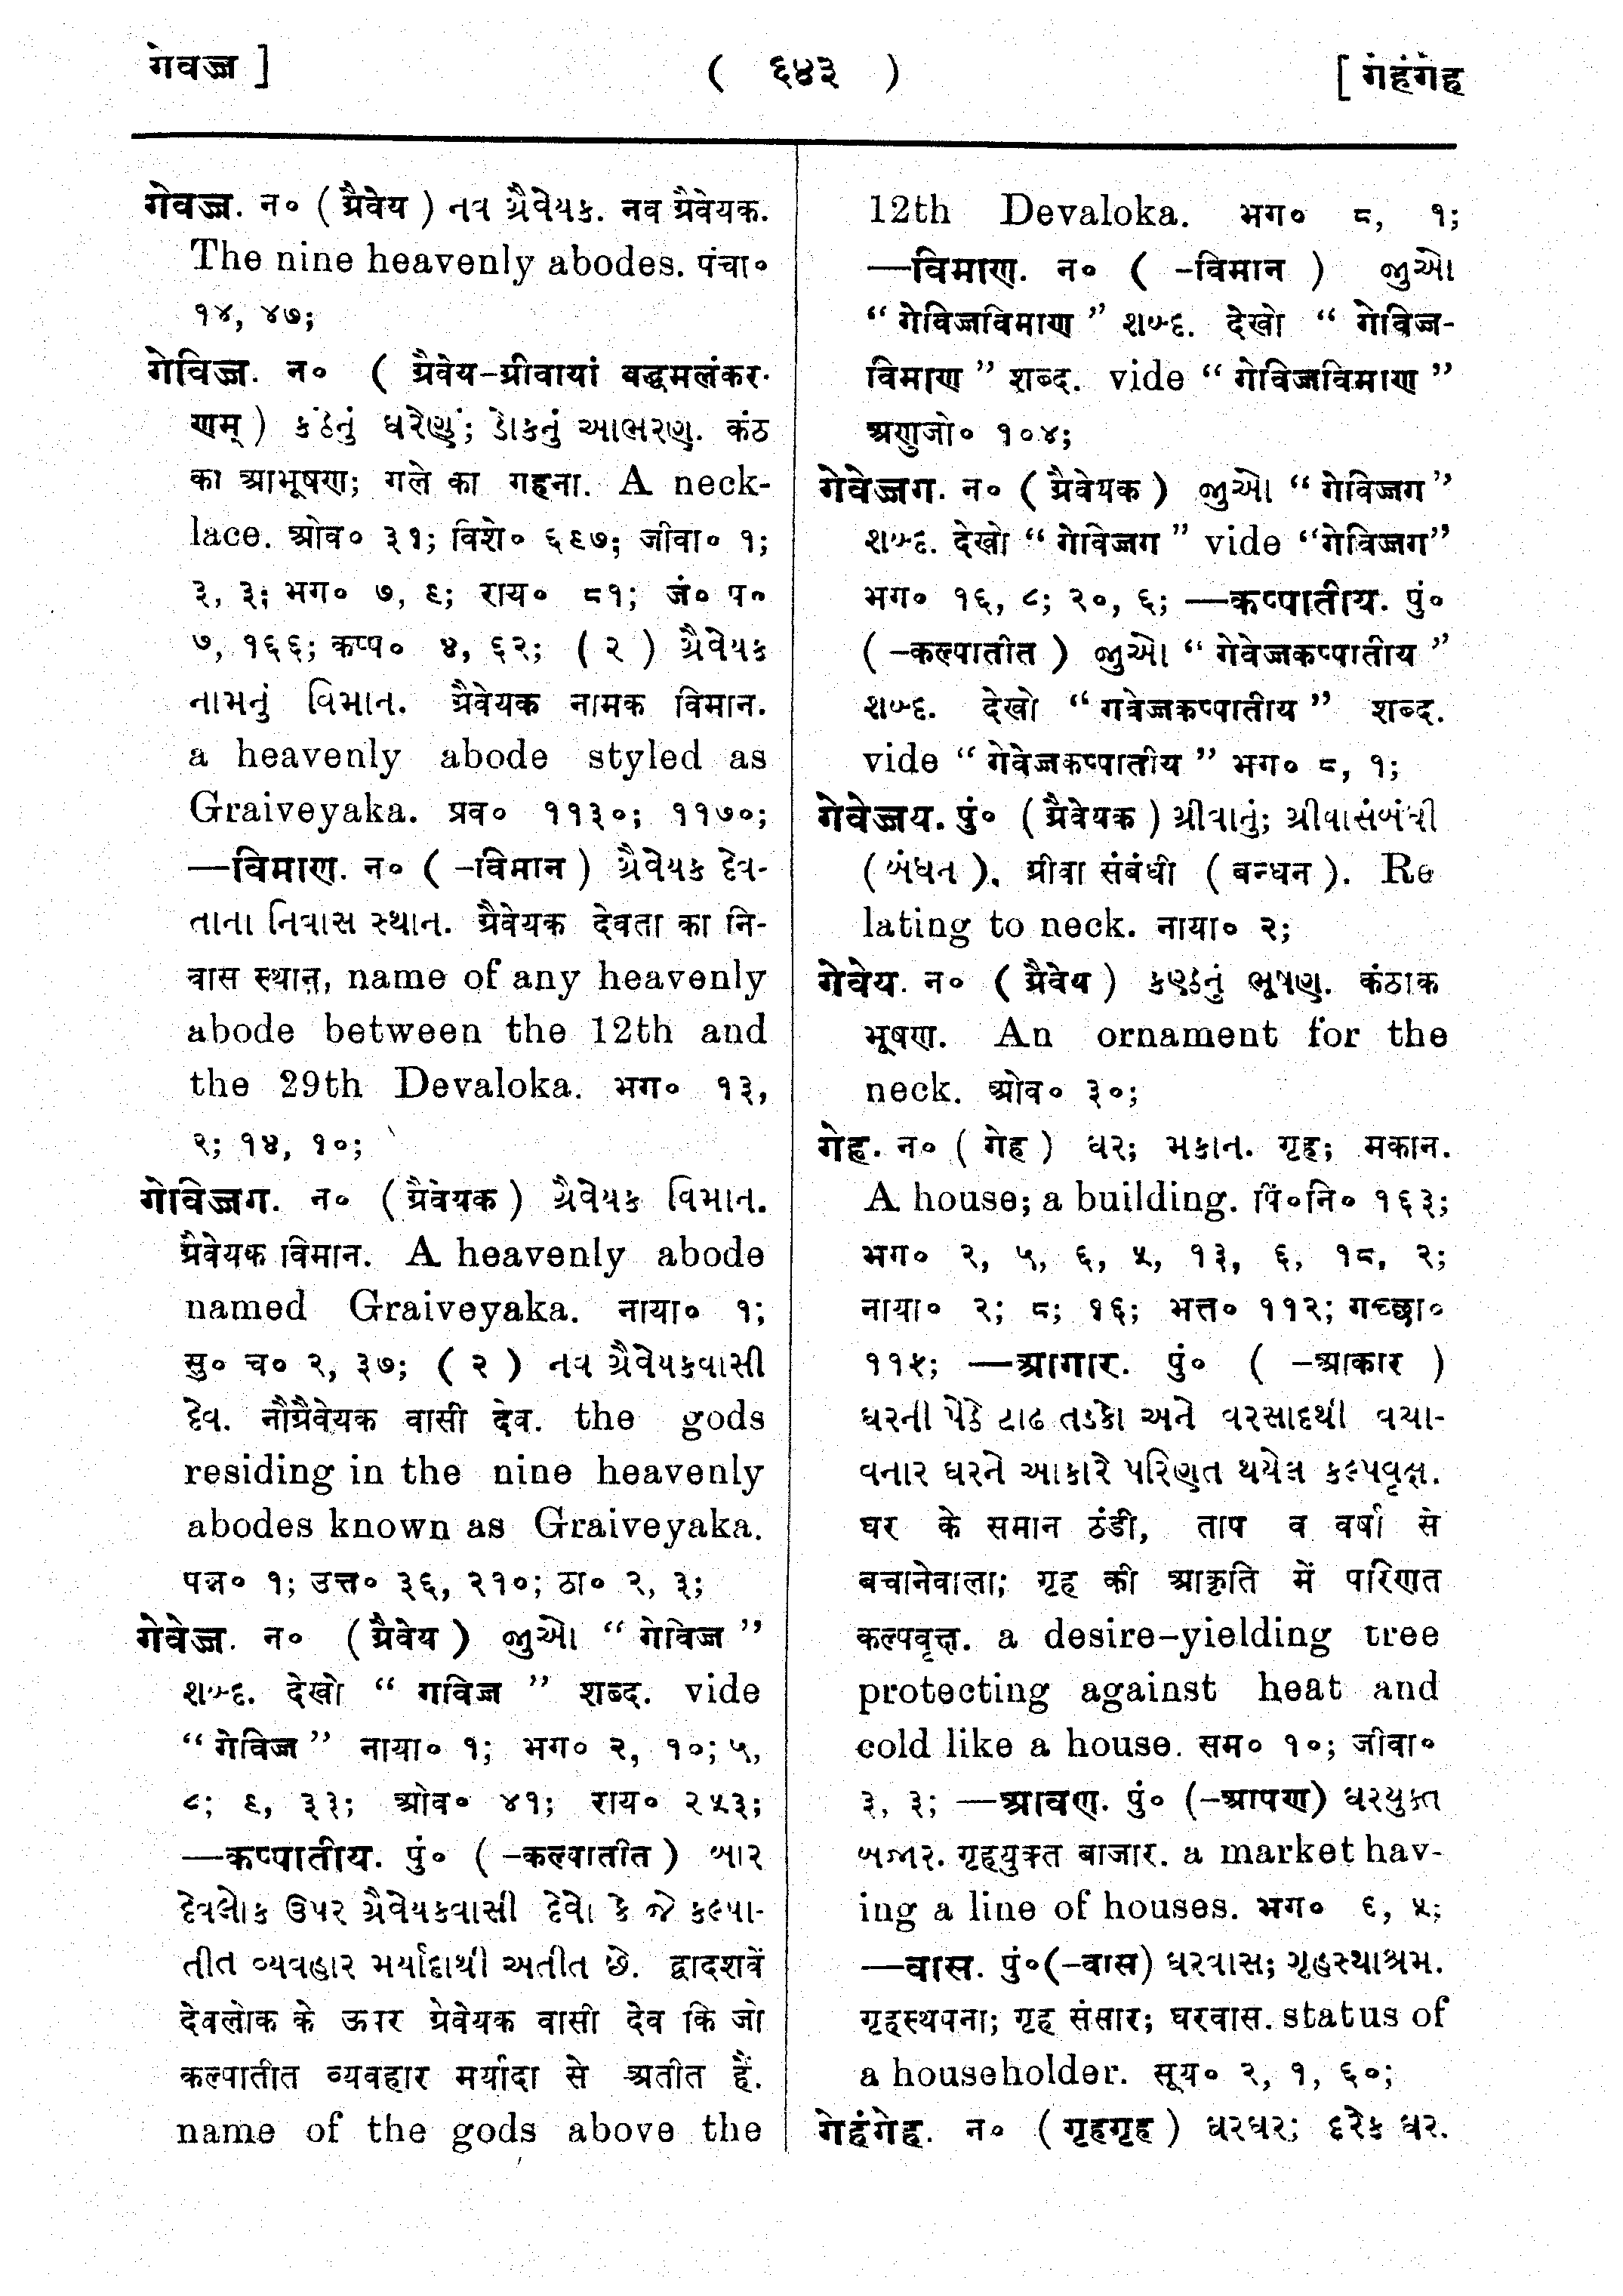 गेवज्ज ]
( ६४३ )
[ गेहंगेह
गेवज्ज. न० ( ग्रैवेय ) નવ ગ્રૈવેયક. नव ग्रैवेयक.
The nine heavenly abodes. पंचा०
१४, ४७;
गेविज्ज. न० ( ग्रैवेय-ग्रीवायां बद्धमलंकर-
णम् ) કંઠનું ઘરેણું; ડોકનું આભરણ. कंठ
का आभूषण; गले का गहना. A neck-
lace. ओव० ३१; विशे० ६९७; जीवा० १;
३, ३; भग० ७, ९; राय० ८१; जं० प०
७, १६६; कप्प० ४, ६२; ( २ ) ગ્રૈવેયક
નામનું વિમાન. ग्रैवेयक नामक विमान.
a heavenly abode styled as
Graiveyaka. प्रव० ११३०; ११७०;
—विमाण. न० ( -विमान ) ગ્રૈવેયક દેવ-
તાના નિવાસ સ્થાન. ग्रैवेयक देवता का नि-
वास स्थान, name of any heavenly
abode between the 12th and
the 29th Devaloka. भग० १३,
२; १४, १०;
गेविज्जग. न० ( ग्रैवेयक ) ગ્રૈવેયક વિમાન.
ग्रैवेयक विमान. A heavenly abode
named Graiveyaka. नाया० १;
सु० च० २, ३७; ( २ ) નવ ગ્રૈવેયકવાસી
દેવ. नौग्रैवेयक वासी देव. the gods
residing in the nine heavenly
abodes known as Graiveyaka.
पन्न० १; उत्त० ३६, २१०; ठा० २, ३;
गेवेज्ज. न० ( ग्रैवेय ) જુઓ “ गेविज्ज ”
શબ્દ. देखो “ गेविज्ज ” शब्द. vide
“ गेविज्ज ” नाया० १; भग० २, १०; ५,
८; ९, ३३; ओव० ४१; राय० २५३;
—कप्पातीय. पुं० ( -कल्पातीत ) બાર
દેવલોક ઉપર ગ્રૈવેયકવાસી દેવો કે જે કલ્પા-
તીત વ્યવહાર મર્યાદાથી અતીત છે. द्वादशवें
देवलोक के ऊपर ग्रेवेयक वासी देव कि जो
कल्पातीत व्यवहार मर्यादा से अतीत हैं.
name of the gods above the
12th Devaloka. भग० ८, १;
—विमाण. न० ( -विमान ) જુઓ
“ गेविज्जविमाण ” શબ્દ. देखो “ गेविज्ज-
विमाण ” शब्द. vide “ गेविज्जविमाण ”
अणुजो० १०४;
गेवेज्जग. न० ( ग्रैवेयक ) જુઓ “ गेविज्जग ”
શબ્દ. देखो “ गेविज्जग ” vide “गेविज्जग”
भग० १६, ८; २०, ६; —कप्पातीय. पुं०
( -कल्पातीत ) જુઓ “ गेवेज्जकप्पातीय ”
શબ્દ. देखो “ गेवेज्जकप्पातीय ” शब्द.
vide “ गेवेज्जकप्पातीय ” भग० ८, १;
गेवेज्जय. पुं० ( ग्रैवेयक ) ગ્રીવાનું; ગ્રીવાસંબંધી
(બંધન ). ग्रीवा संबंधी ( बन्धन ). Re
lating to neck. नाया० २;
गेवेय. न० ( ग्रैवेय ) કણ્ઠનું ભૂષણ. कंठाक
भूषण. An ornament for the
neck. ओव० ३०;
गेह. न० ( गेह ) ઘર; મકાન. गृह; मकान.
A house; a building. पिं०नि० १६३;
भग० २, ५, ६, ५, १३, ६, १८, २;
नाया० २; ८; १६; भत्त० ११२; गच्छा०
११५; —आगार. पुं० ( -आकार )
ઘરની પેઠે ટાઢ તડકો અને વરસાદથી બચા-
વનાર ઘરને આકારે પરિણત થયેલ કલ્પવૃક્ષ.
घर के समान ठंडी, ताप व वर्षा से
बचानेवाला; गृह की आकृति में परिणत
कल्पवृक्ष. a desire-yielding tree
protecting against heat and
cold like a house. सम० १०; जीवा०
३, ३; —आवण. पुं० (-आपण) ઘરયુક્ત
બજાર. गृहयुक्त बाजार. a market hav-
ing a line of houses. भग० ६, ५;
—वास. पुं०(-वास) ઘરવાસ; ગૃહસ્થાશ્રમ.
गृहस्थपना; गृह संसार; घरवास. status of
a householder. सूय० २, १, ६०;
गेहंगेह. न० ( गृहगृह ) ઘરઘર; દરેક ઘર.